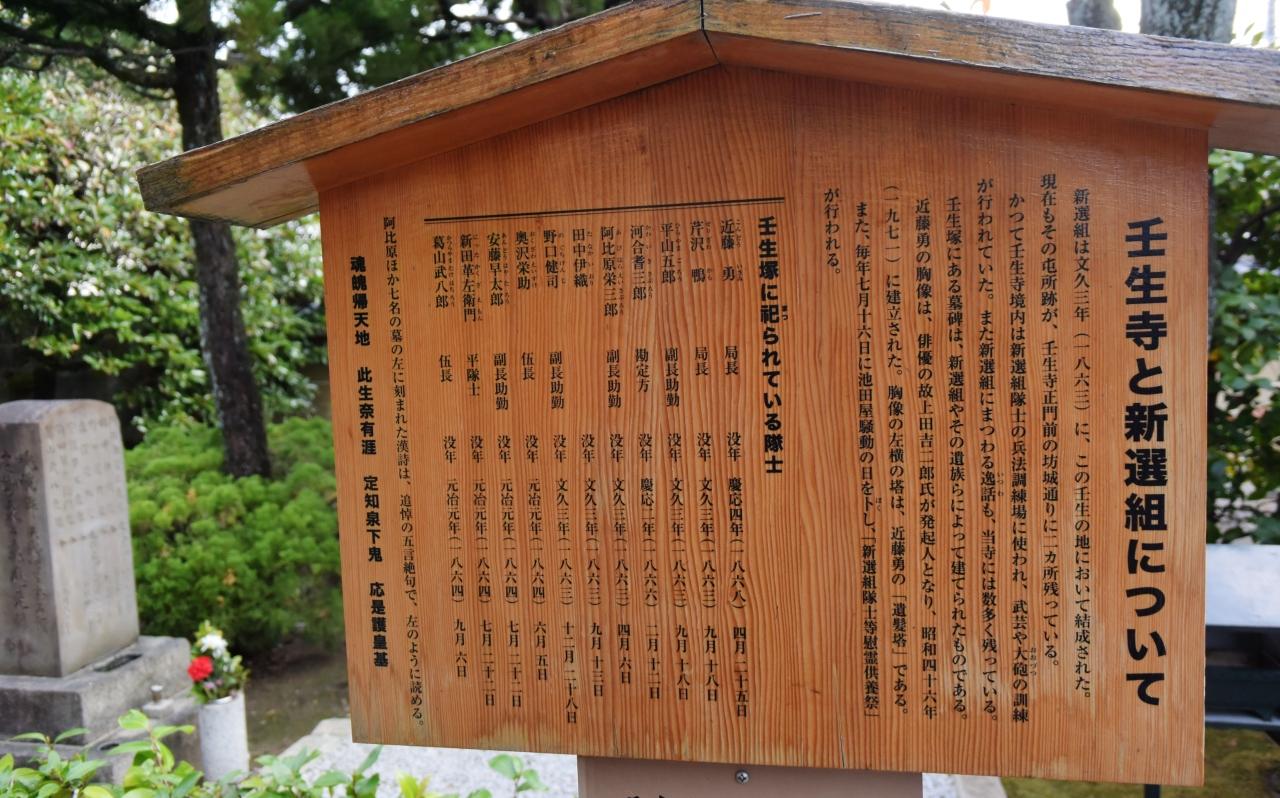 壬生寺と新選組について
新選組は文久三年（一八六三）に、この壬生の地において結成された。
現在もその屯所跡が、壬生寺正門前の坊城通りに二カ所残っている。
かつて壬生寺境内は新選組隊士の兵法訓練場に使われ、武芸や大砲の訓練
が行われていた。また新選組にまつわる逸話も、当寺には数多く残っている。
壬生塚にある墓碑は、新選組やその遺族らによって建てられたものである。
近藤勇の胸像は、俳優の故上田吉二郎氏が発起人となり、昭和四十六年
（一九七一）に建立された。胸像の左横の塔は、近藤勇の「遺髪塔」である。
また、毎年七月十六日に池田屋騒動の日を卜し、「新選組隊士等慰霊供養祭」
が行われる。
壬生塚に祀られている隊士
近藤 勇 局長 没年 慶応四年（一八六八）四月二十五日
芹沢 鴨 局長 没年 文久三年（一八六三）九月十八日
平山五郎 副長助勤 没年 文久三年（一八六三）九月十八日
河合耆三郎 勘定方 没年 慶応二年（一八六六）二月十二日
阿比原栄三郎 副長助勤 没年 文久三年（一八六三）四月六日
田中伊織 没年 文久三年（一八六三）九月十三日
野口健司 副長助勤 没年 文久三年（一八六三）十二月二十八日
奥沢栄助 伍長 没年 元治元年（一八六四）六月五日
安藤早太郎 副長助勤 没年 元治元年（一八六四）七月二十二日
新田革左衛門 平隊士 没年 元治元年（一八六四）七月二十二日
葛山武八郎 伍長 没年 元治元年（一八六四）九月六日
阿比原ほか七名の墓の左に刻まれた漢詩は、追悼の五言絶句で、左のように読める。
魂魄帰天地 此生奈有涯 定知泉下鬼 応是護皇基